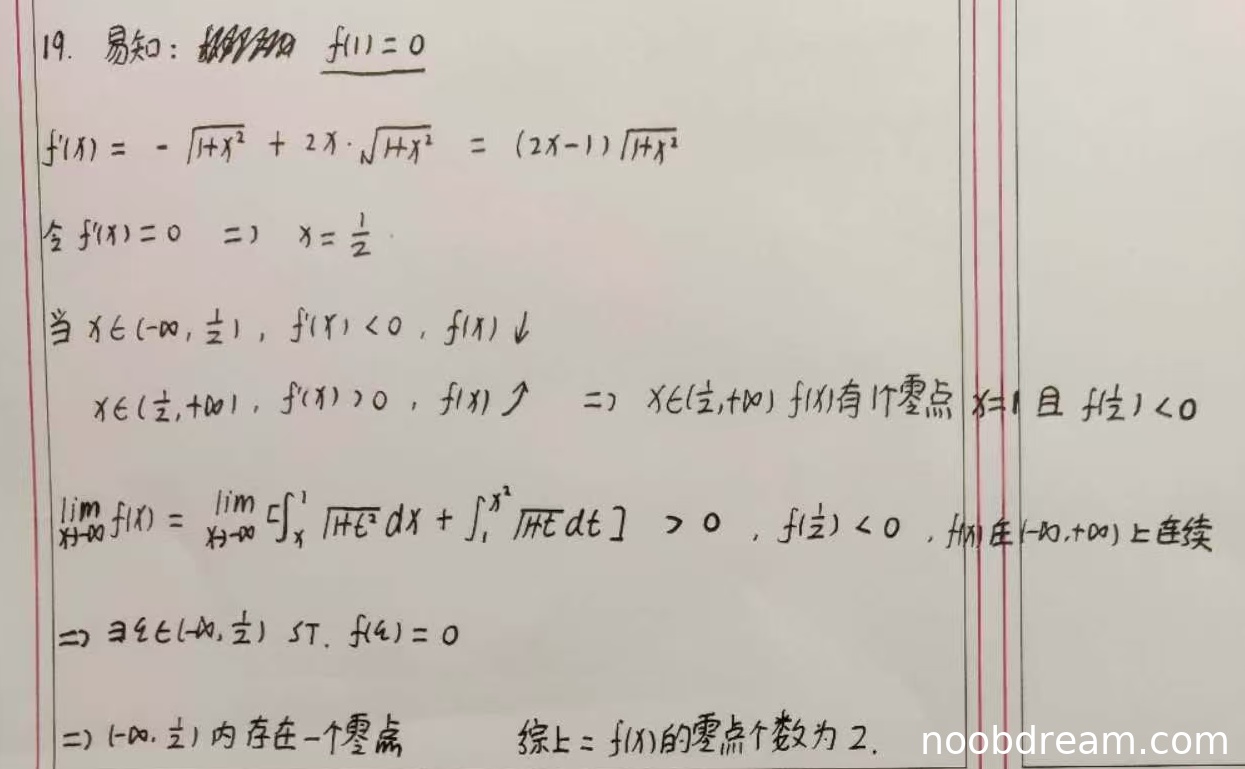 19. 易知: f(1) = 0
f'(x) = - √(1+x²) + 2x·√(1+x²) = (2x-1)√(1+x²)
令 f'(x) = 0 => x = 1/2
当 x∈(-∞, 1/2), f'(x) < 0, f(x)↓
x∈(1/2,+∞), f'(x) > 0, f(x)↗ => x∈(1/2,+∞) f(x)有1个零点 x=1 且 f(1/2) < 0
lim x→-∞ f(x) = lim x→-∞ [∫_x^1 √(1+t²) dx + ∫_1^{x²} √(1+t) dt] > 0, f(1/2) < 0, f(x)在(-∞,+∞)上连续
=> ∃ξ∈(-∞, 1/2) ST. f(ξ) = 0
=> (-∞, 1/2) 内存在一个零点 综上: f(x)的零点个数为 2.
noobdream.com